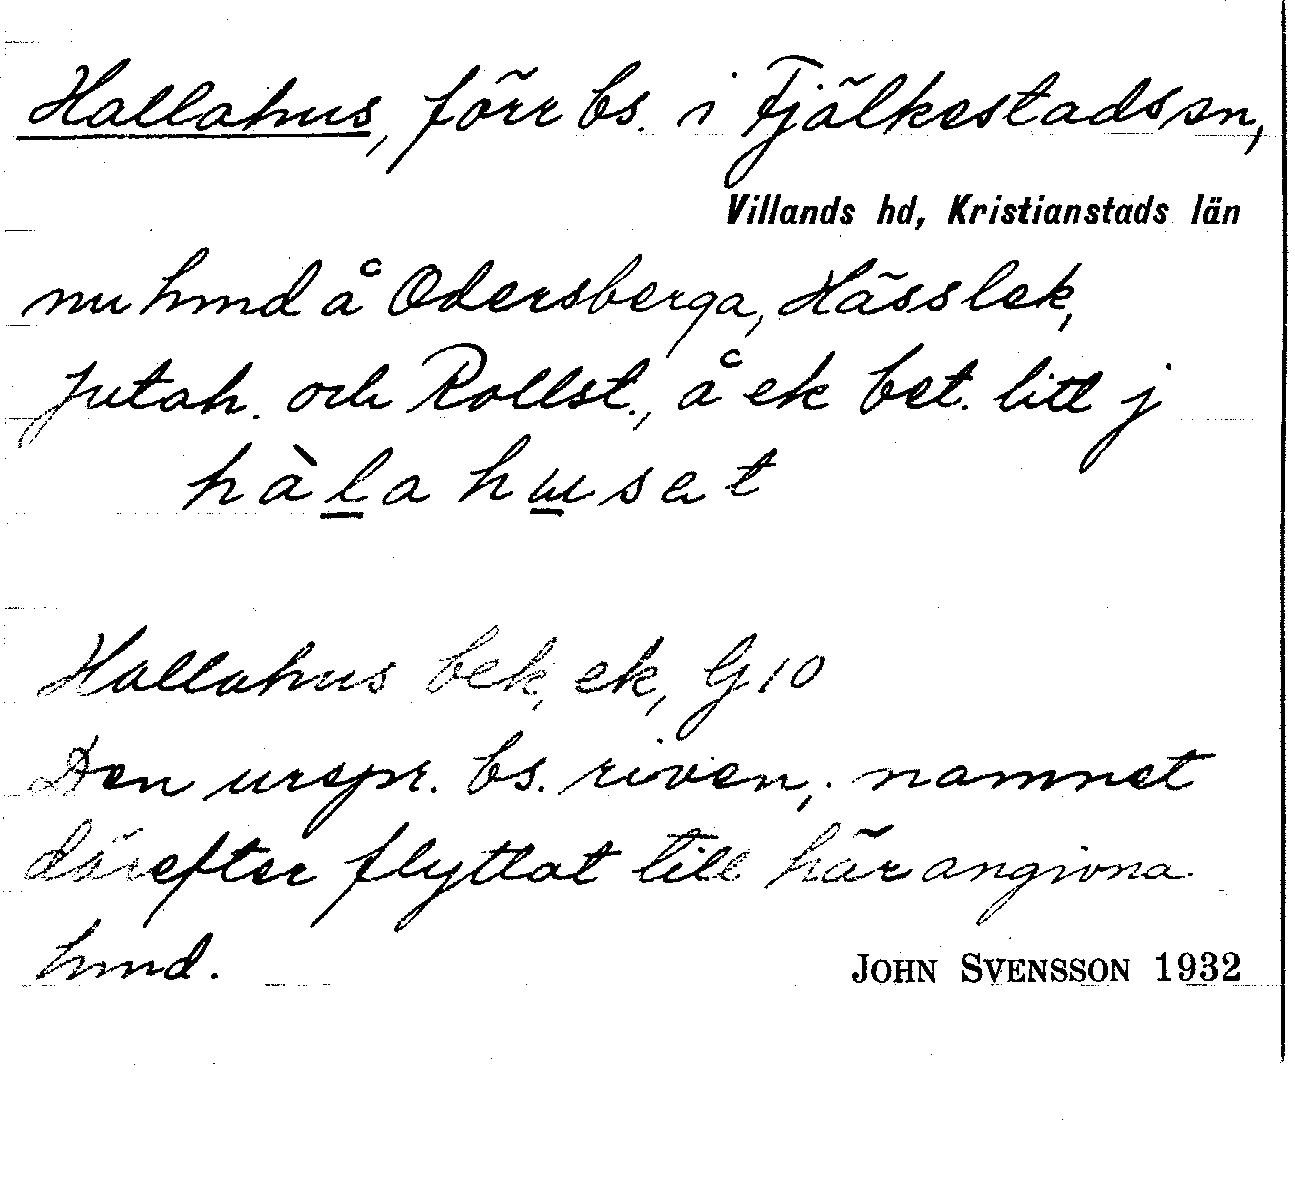 Hallahus, förr bs. i Fjälkestads sn,
Villands hd, Kristianstads län
nu hmd å Odersberga, Hässlek,
Jutah. och Rollst., å ek bet. litt j
hàlahuset
Hallahus bek, ek, G 10
Den urspr. bs. riven, namnet
därefter flyttat till här angivna
hmd.
JOHN SVENSSON 1932